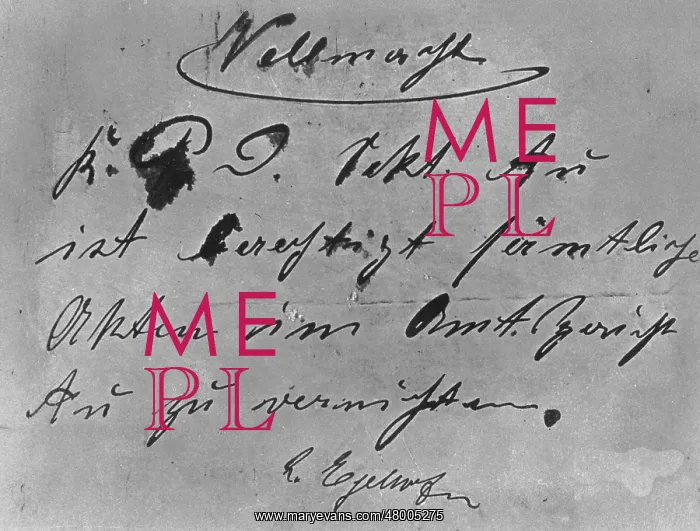 Vollmacht.
K. P. D. Sekt. Au
ist berechtigt sämtliche
Akten im Amt. Gericht
Au zu vernichten.
R. Egelhofer
ME
PL
ME
PL
www.maryevans.com/48005275